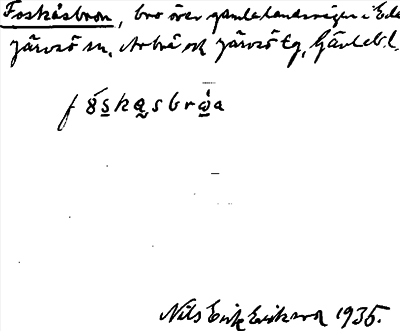 Foskåsbron, bro över gamla landsvägen i Ede
Järvsö sn, Arbrå och Järvsö tg, Gävleb. l.
Nils Erik Eriksson 1935.